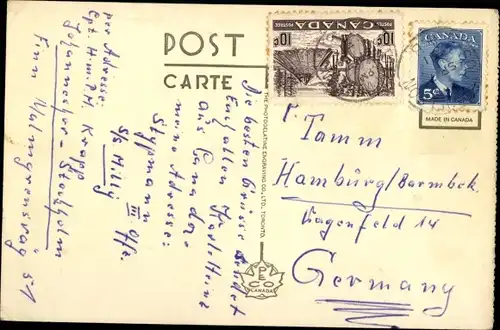 POST
CARTE
CANADA
POSTES POSTAGE
10¢ 10¢
CANADA
POSTES POSTAGE
5¢
MADE IN CANADA
THE PHOTOGELATINE ENGRAVING CO., LTD., TORONTO.
PECO
CANADA
Die besten Grüsse sendet
Euch allen Karlheinz
aus Canada.
meine Adresse:
Stypmann III. Offz
S/S Milly
per Adresse
Cpt. H.
Johanneshov - Stockholm
Finn Malmgrensväg 51
Tamm
Hamburg/Barmbek.
Wagenfeld 14
Germany